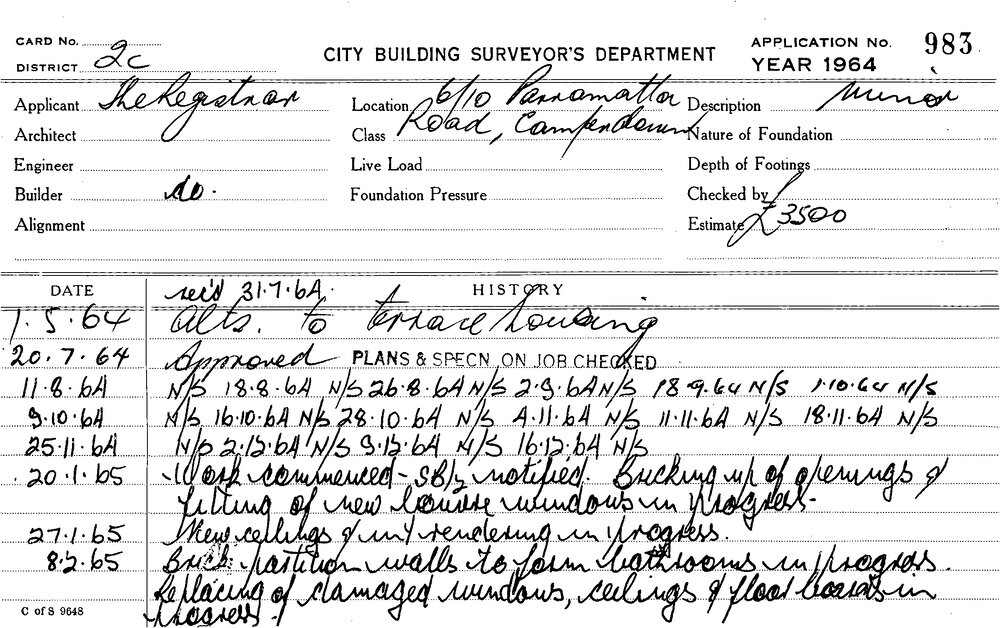 CARD No.
DISTRICT 2c
CITY BUILDING SURVEYOR'S DEPARTMENT
APPLICATION No. 983
YEAR 1964
Applicant The Registrar
Location 6/10 Parramatta
Description Minor
Architect
Class Road, Camperdown
Nature of Foundation
Engineer
Live Load
Depth of Footings
Builder do.
Foundation Pressure
Checked by
Alignment
Estimate £3500
DATE
rec'd 31.7.64.
HISTORY
1.5.64 Alts. to terrace housing
20.7.64 Approved PLANS & SPECN. ON JOB CHECKED
11.8.64 N/S 18.8.64 N/S 26.8.64 N/S 2.9.64 N/S 18.9.64 N/S 1.10.64 N/S
9.10.64 N/S 16.10.64 N/S 28.10.64 N/S 4.11.64 N/S 11.11.64 N/S 18.11.64 N/S
25.11.64 N/S 2.12.64 N/S 9.12.64 N/S 16.12.64 N/S
20.1.65 Work commenced - notified. Bricking up of openings &
fitting of new louvre windows in progress.
27.1.65 New ceilings & int rendering in progress.
8.2.65 Brick partition walls to form bathrooms in progress.
Replacing of damaged windows, ceilings & floor boards in
progress.
C of S 9648